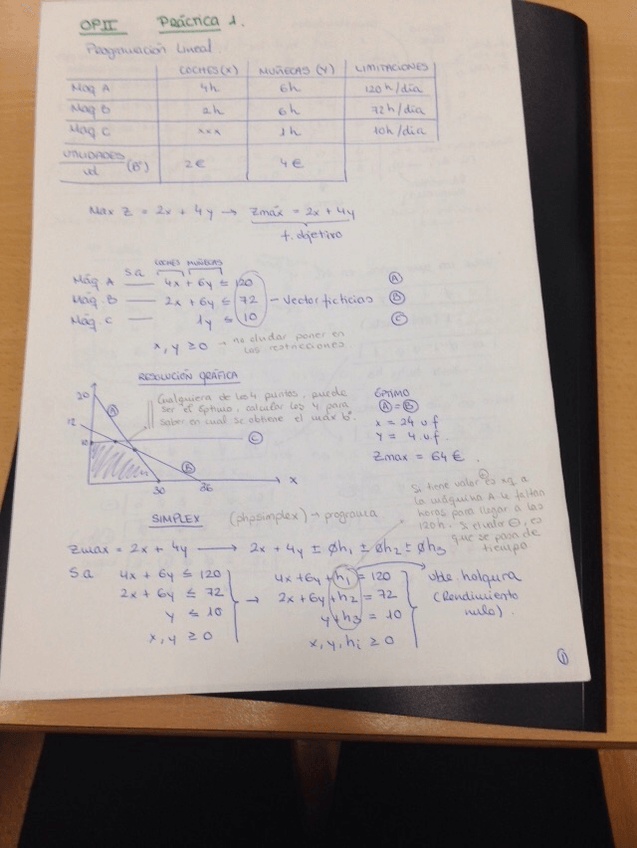 OPII Práctica 1.
Programación Lineal.
COCHES (X) MUÑECAS (Y) LIMITACIONES
Maq A 4h 6h 120 h/día
Maq B 2h 6h 72 h/día
Maq C xxx 1h 10h/día
UTILIDADES/ud (Bº) 2€ 4€
Max Z = 2x + 4y → Zmáx = 2x + 4y
f. objetivo
s.a COCHES MUÑECAS
Máq. A — 4x + 6y ≤ 120 Ⓐ
Máq. B — 2x + 6y ≤ 72 — Vector ficticias Ⓑ
Máq. C — 1y ≤ 10 Ⓒ
x, y ≥ 0 → no olvidar poner en
las restricciones
RESOLUCIÓN GRÁFICA
Cualquiera de los 4 puntos, puede
ser el óptimo, calcular los 4 para
saber en cual se obtiene el max bº
20
A
12
10
C
B
30 36 x
ÓPTIMO
Ⓐ = Ⓑ
x = 24 u.f
y = 4 u.f.
Zmax = 64€.
Si tiene valor ⊕ es xq a
la máquina A le faltan
horas para llegar a las
120h. Si el valor ⊖, es
que se pasa de
tiempo
SIMPLEX (phpsimplex) → programa
Zmax = 2x + 4y → 2x + 4y ± Øh1 ± Øh2 ± Øh3
S.a 4x + 6y ≤ 120 4x + 6y + h1 = 120 vble. holgura
2x + 6y ≤ 72 → 2x + 6y + h2 = 72 (Rendimiento
y ≤ 10 y + h3 = 10 nulo).
x, y ≥ 0 x, y, hi ≥ 0
①